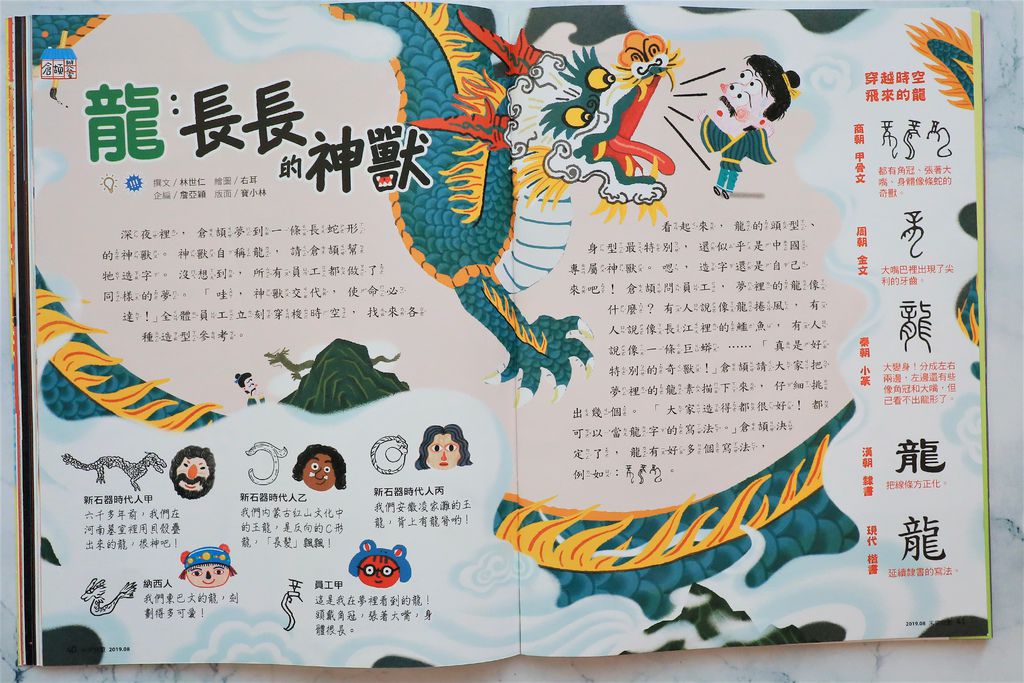 倉頡
龍：長長的神獸
撰文／林世仁　繪圖／右耳
企編／詹亞穎　版面／寶小林
深夜裡，倉頡夢到一條長蛇形
的神獸。神獸自稱龍，請倉頡幫
牠造字。沒想到，所有員工都做了
同樣的夢。「哇，神獸交代，使命必
達！」全體員工立刻穿梭時空，找來各
種造型參考。
新石器時代人甲
六千多年前，我們在
河南墓室裡用貝殼疊
出來的龍，很神吧！
新石器時代人乙
我們內蒙古紅山文化中
的玉龍，是反向的C形
龍，「長髮」飄飄！
新石器時代人丙
我們安徽凌家灘的玉
龍，背上有龍脊喲！
納西人
我們東巴文的龍，刻
劃得多可愛！
員工甲
這是我在夢裡看到的龍！
頭戴角冠，張著大嘴，身
體很長。
40
2019.08
看起來，龍的頭型、
身型最特別，還似乎是中國
專屬神獸。嗯，造字還是自己
來吧！倉頡問員工，夢裡的龍像
什麼？有人說像龍捲風，有
人說像長江裡的鱷魚，有人
說像一條巨蟒……「真是好
特別的奇獸！」倉頡請大家把
夢裡的龍素描下來，仔細挑
出幾個。「大家造得都很好！都
可以當龍字的寫法。」倉頡決
定了，龍有好多個寫法，
例如：
穿越時空
飛來的龍
商朝 甲骨文
都有角冠、張著大
嘴、身體像條蛇的
奇獸。
周朝 金文
大嘴巴裡出現了尖
利的牙齒。
秦朝 小篆
龍
大變身！分成左右
兩邊，左邊還有些
像角冠和大嘴，但
已看不出龍形了。
漢朝 隸書
龍
把線條方正化。
現代 楷書
龍
延續隸書的寫法。
2019.08
41